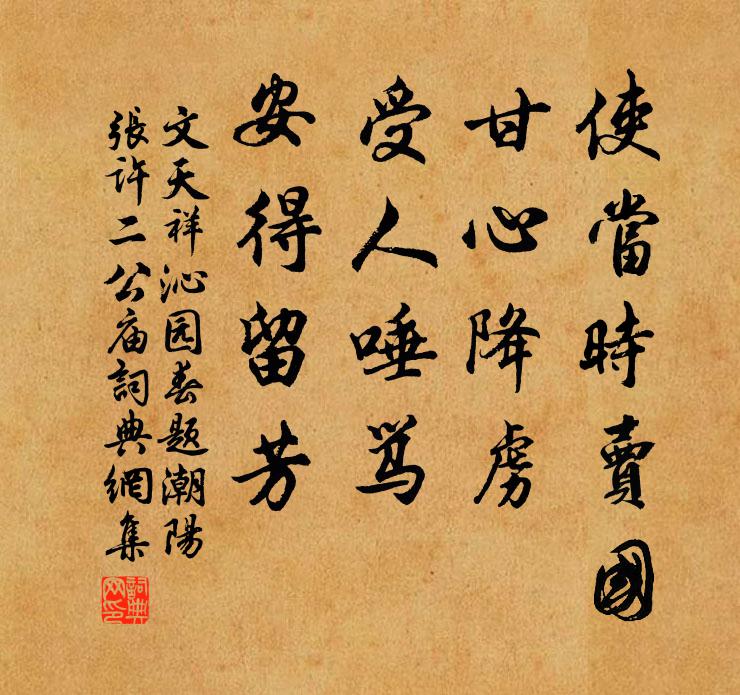 使當時賣國
甘心降虜
受人唾骂
安得留芳
文天祥沁园春题潮陽
張许二公庙詞典網集
詞典
网印